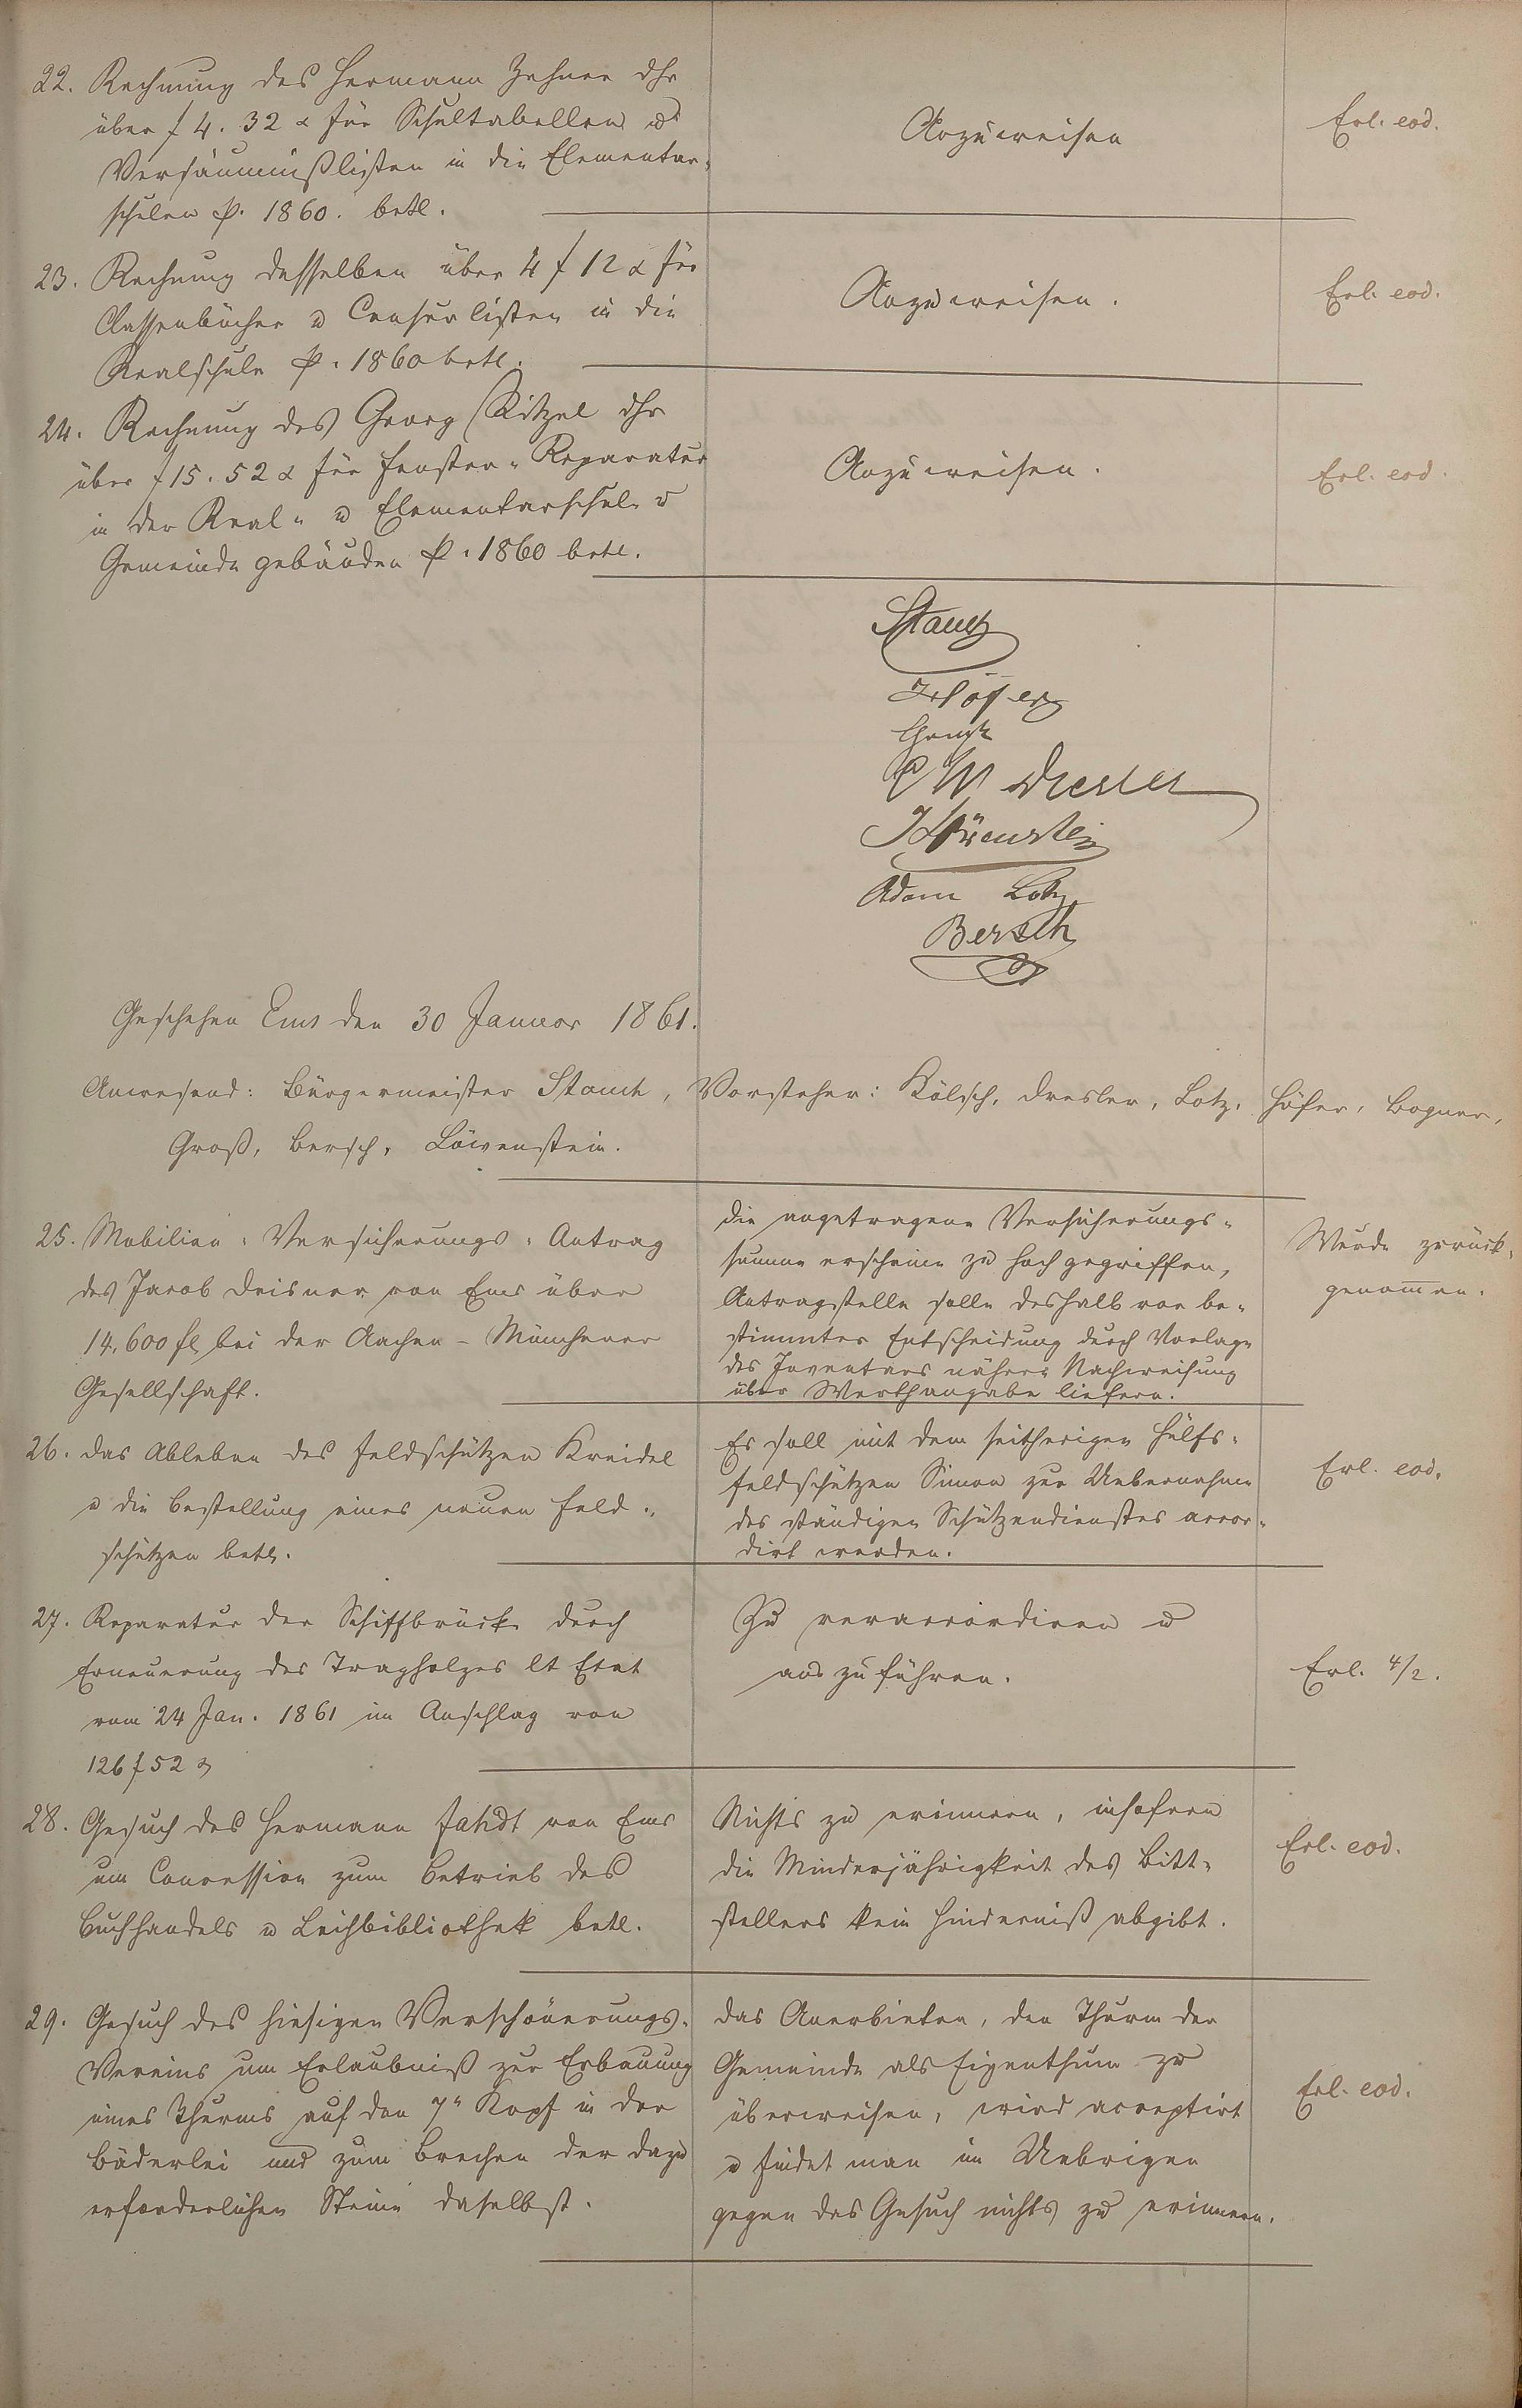 22. Rechnung des Hermann Zehner dhr
über f 4. 32 x für Schultabellen u
Versäumnißlisten in die Elementar-
schulen p. 1860. betr.
Anzuweisen
Erl. eod.
23. Rechnung desselben über 4 f 12 x für
Classenbücher u Censurlisten in die
Realschule p. 1860 betr.
Anzuweisen.
Erl. eod.
24. Rechnung des Georg Kitzel dhr
über f 15. 52 x für Fenster-Reparatur
in der Real- u Elementarschule u
Gemeindegebäuden p. 1860 betr.
Anzuweisen.
Erl. eod.
Stauch
Höfer
P W Dresler
J Löwenstein
Adam Lotz
Bersch
Geschehen Ems den 30 Januar 1861.
Anwesend: Bürgermeister Stauch, Vorsteher: Kölsch, Dresler, Lotz, Höfer, Bogner,
Groß, Bersch, Löwenstein.
25. Mobilien-Versicherungs-Antrag
des Jacob Deisner von Ems über
14,600 fl bei der Aachen-Münchener
Gesellschaft.
Die angetragene Versicherungs-
summe erscheine zu hoch gegriffen,
Antragstelle solle deshalb vor be-
stimmter Entscheidung durch Vorlage
des Inventars nähere Nachweisung
über Werthangabe liefern.
Wurde zurück-
genommen.
26. Das Ableben des Feldschützen Kreidel
u die Bestellung eines neuen Feld-
schützen betr.
Es soll mit dem seitherigen Hülfs-
feldschützen Simon zur Uebernahme
des ständigen Schützendienstes accor-
dirt werden.
Erl. eod.
27. Reparatur der Schiffbrücke durch
Erneuerung des Tragholzes lt Etat
vom 24 Jan. 1861 im Anschlag von
126 f 52 x
Zu veraccordiren u
auszuführen.
Erl. 4/2.
28. Gesuch des Hermann Fahdt von Ems
um Concession zum Betrieb des
Buchhandels u Leihbibliothek betr.
Nichts zu erinnern, insofern
die Minderjährigkeit des Bitt-
stellers kein Hinderniß abgibt.
Erl. eod.
29. Gesuch des hiesigen Verschönerungs-
Vereins um Erlaubniß zur Erbauung
eines Thurms auf den 7n Kopf in der
Bäderlei und zum Brechen der dazu
erforderlichen Steine daselbst.
Das Anerbieten, den Thurm der
Gemeinde als Eigenthum zu
überweisen, wird acceptirt
u findet man im Uebrigen
gegen das Gesuch nichts zu erinnern.
Erl. eod.